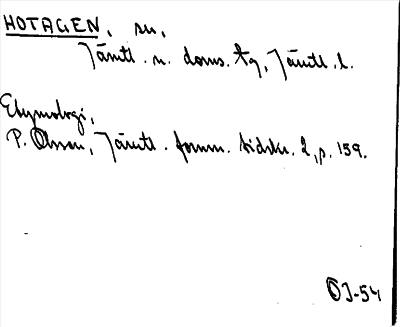 HOTAGEN, sn,
Jämtl. n. doms. tg, Jämtl. l.
Etymologi,
P. Olsson, Jämtl. fornm. tidskr. 2, p. 159.
OJ-54